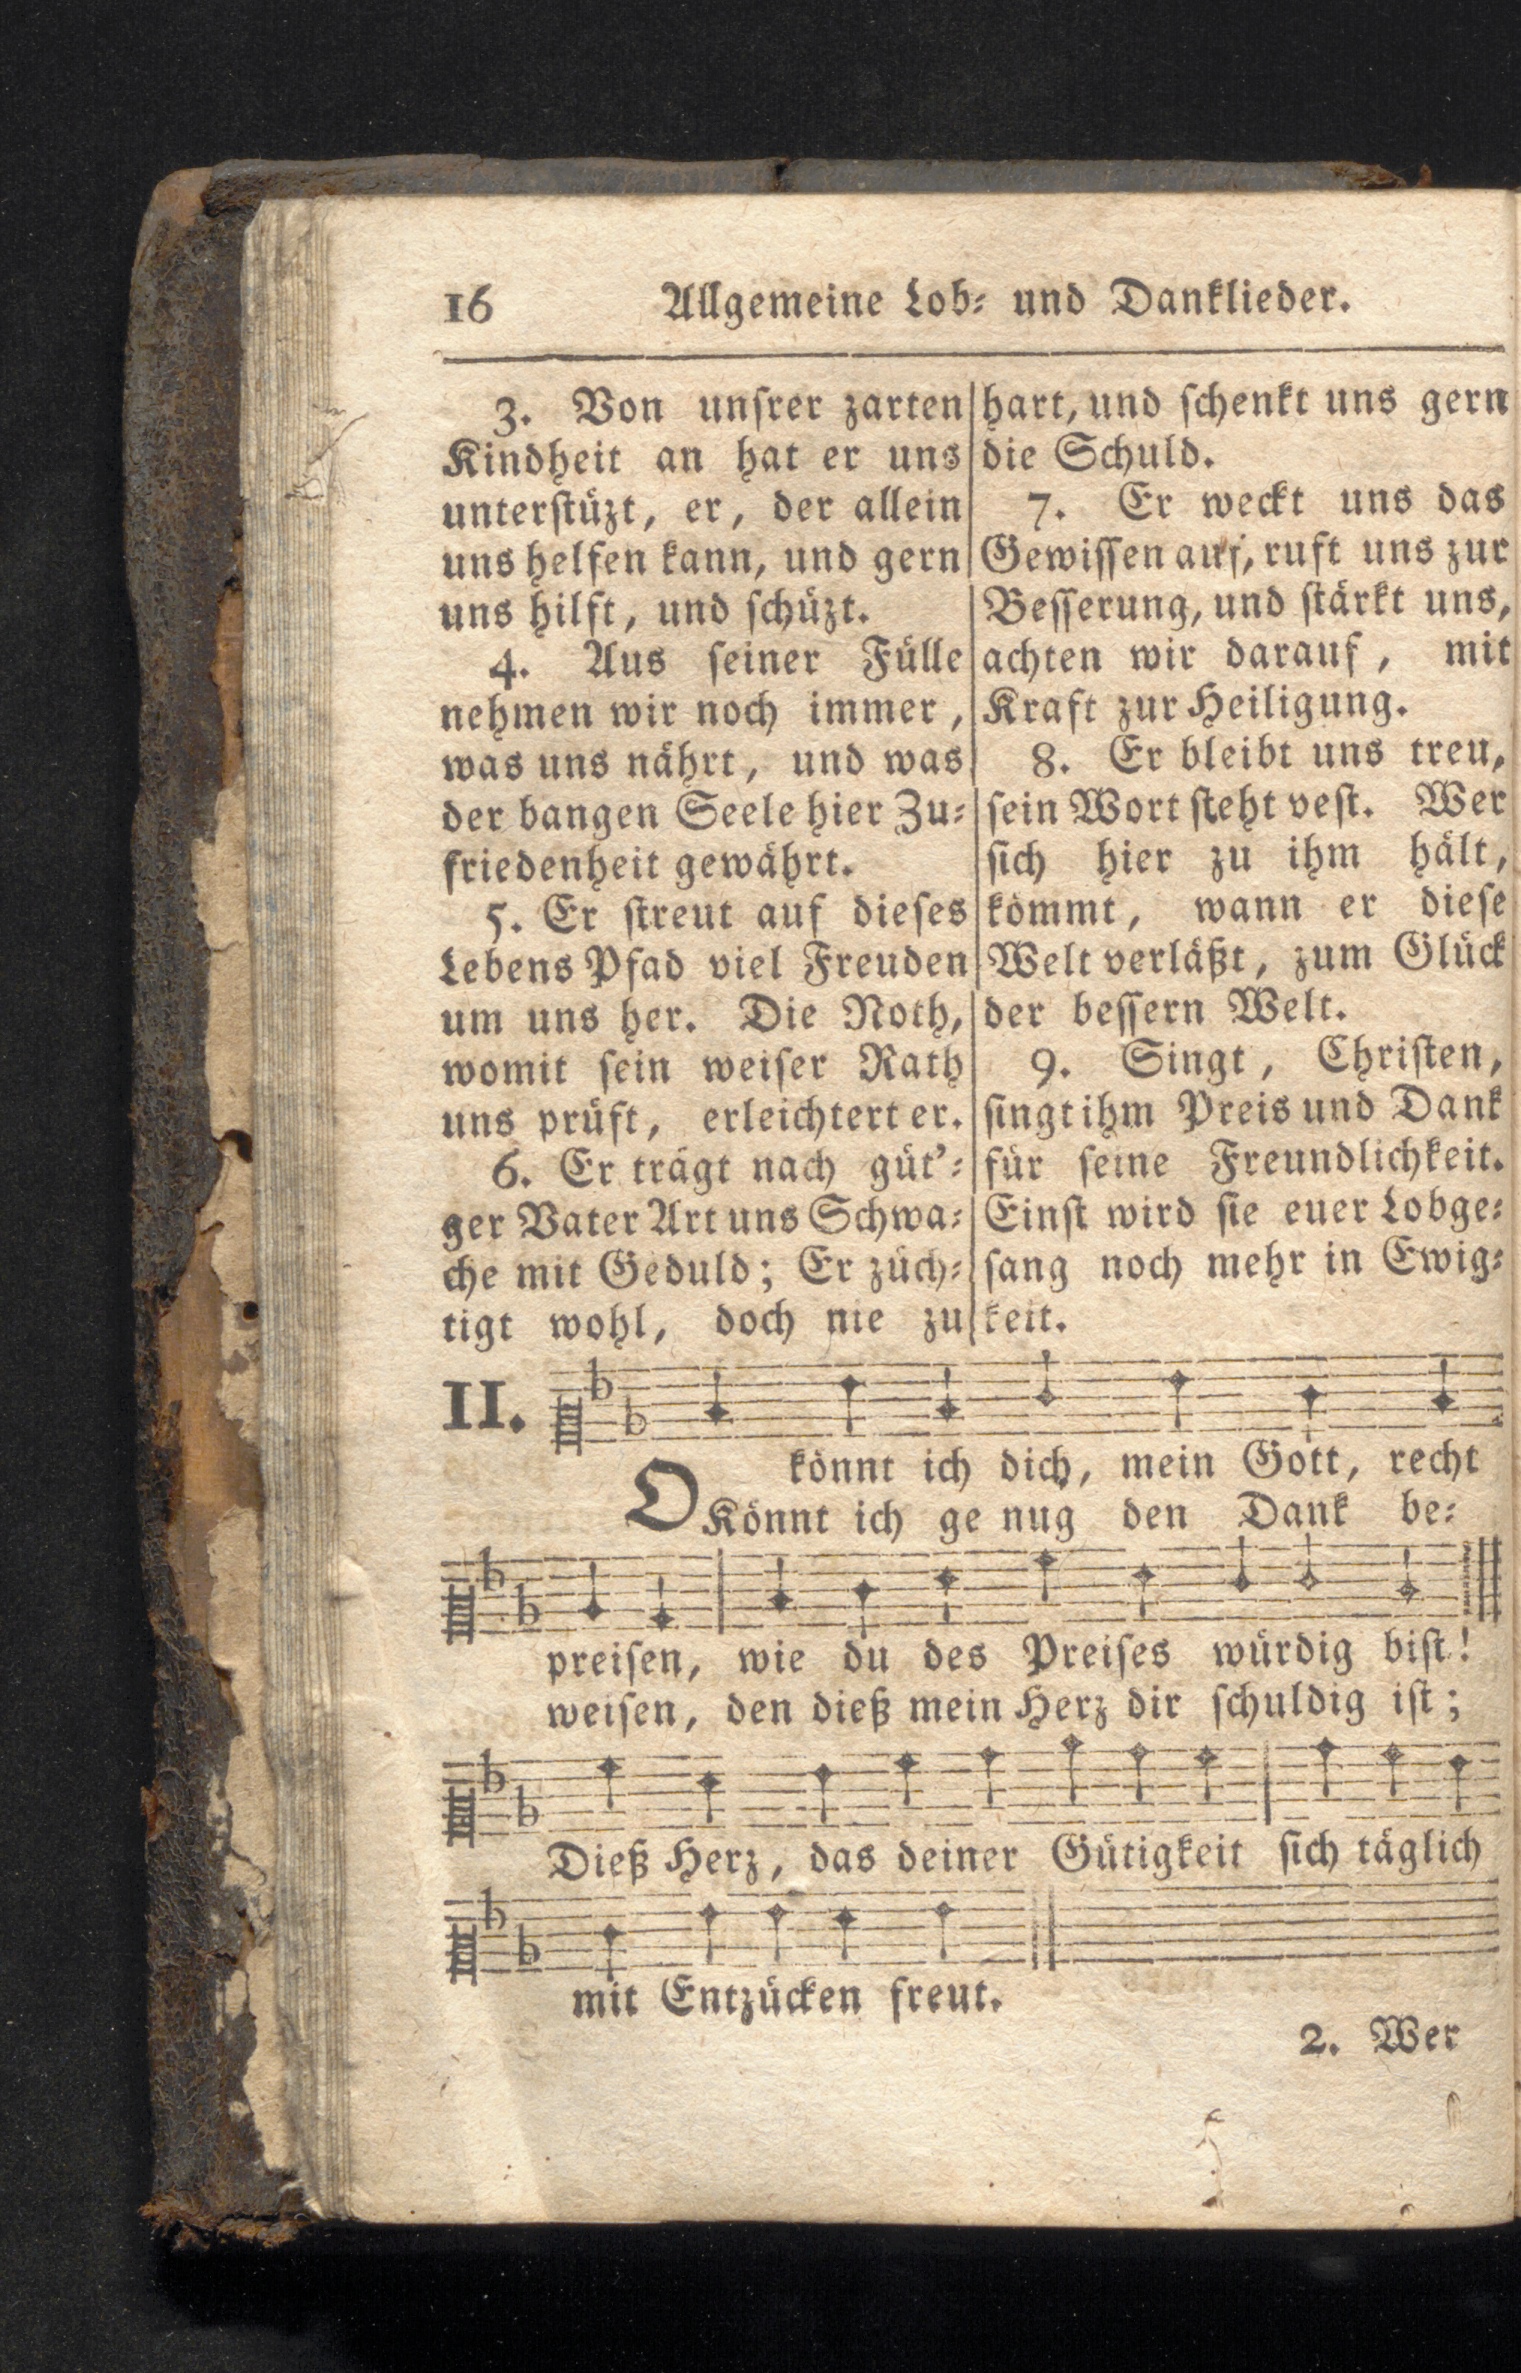 16 Allgemeine Lob- und Danklieder.
3. Von unsrer zarten
Kindheit an hat er uns
unterstüzt, er, der allein
uns helfen kann, und gern
uns hilft, und schüzt.
4. Aus seiner Fülle
nehmen wir noch immer,
was uns nährt, und was
der bangen Seele hier Zu-
friedenheit gewährt.
5. Er streut auf dieses
Lebens Pfad viel Freuden
um uns her. Die Noth,
womit sein weiser Rath
uns prüft, erleichtert er.
6. Er trägt nach güt'-
ger Vater Art uns Schwa-
che mit Geduld; Er züch-
tigt wohl, doch nie zu
hart, und schenkt uns gern
die Schuld.
7. Er weckt uns das
Gewissen auf, ruft uns zur
Besserung, und stärkt uns,
achten wir darauf, mit
Kraft zur Heiligung.
8. Er bleibt uns treu,
sein Wort steht vest. Wer
sich hier zu ihm hält,
kömmt, wann er diese
Welt verläßt, zum Glück
der bessern Welt.
9. Singt, Christen,
singt ihm Preis und Dank
für seine Freundlichkeit.
Einst wird sie euer Lobge-
sang noch mehr in Ewig-
keit.
11.
O könnt ich dich, mein Gott, recht
Könnt ich ge nug den Dank be-
preisen, wie du des Preises würdig bist!
weisen, den dieß mein Herz dir schuldig ist;
Dieß Herz, das deiner Gütigkeit sich täglich
mit Entzücken freut.
2. Wer